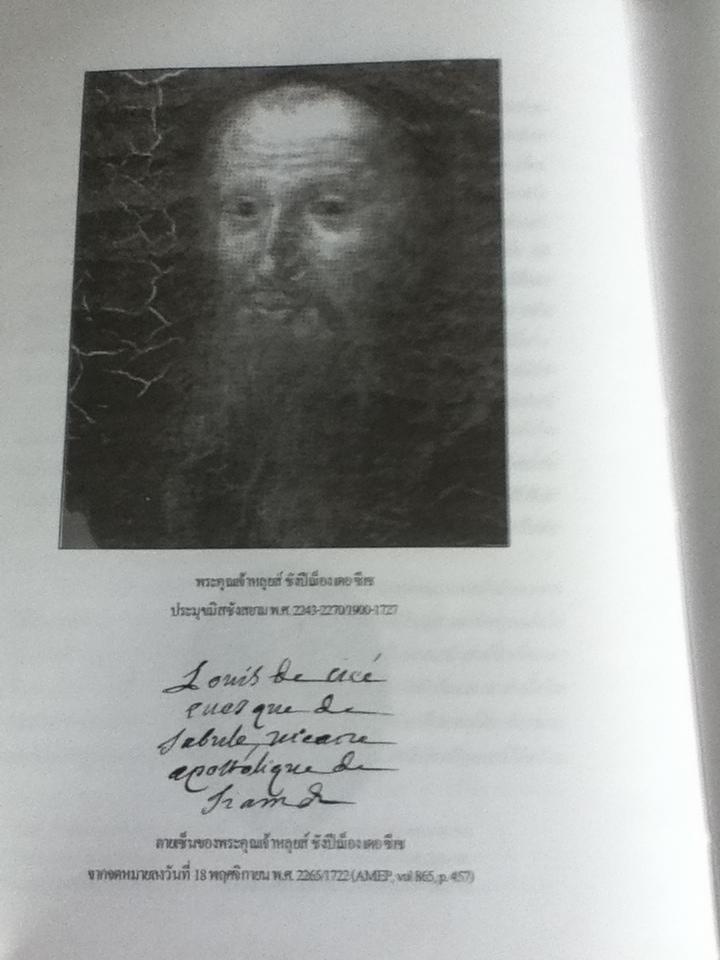 พระคุณเจ้าหลุยส์ ชังปีเอือง เดอ ซีเซ
ประมุขมิสซังสยาม พ.ศ. 2243-2270/1900-1727
Louis de cicé
euesque de
Sabule, vicaire
apostolique de
Siam &
ลายเซ็นของพระคุณเจ้าหลุยส์ ชังปีเอือง เดอ ซีเซ
จากจดหมายลงวันที่ 18 พฤศจิกายน พ.ศ. 2265/1722 (AMEP, vol 865, p. 457)